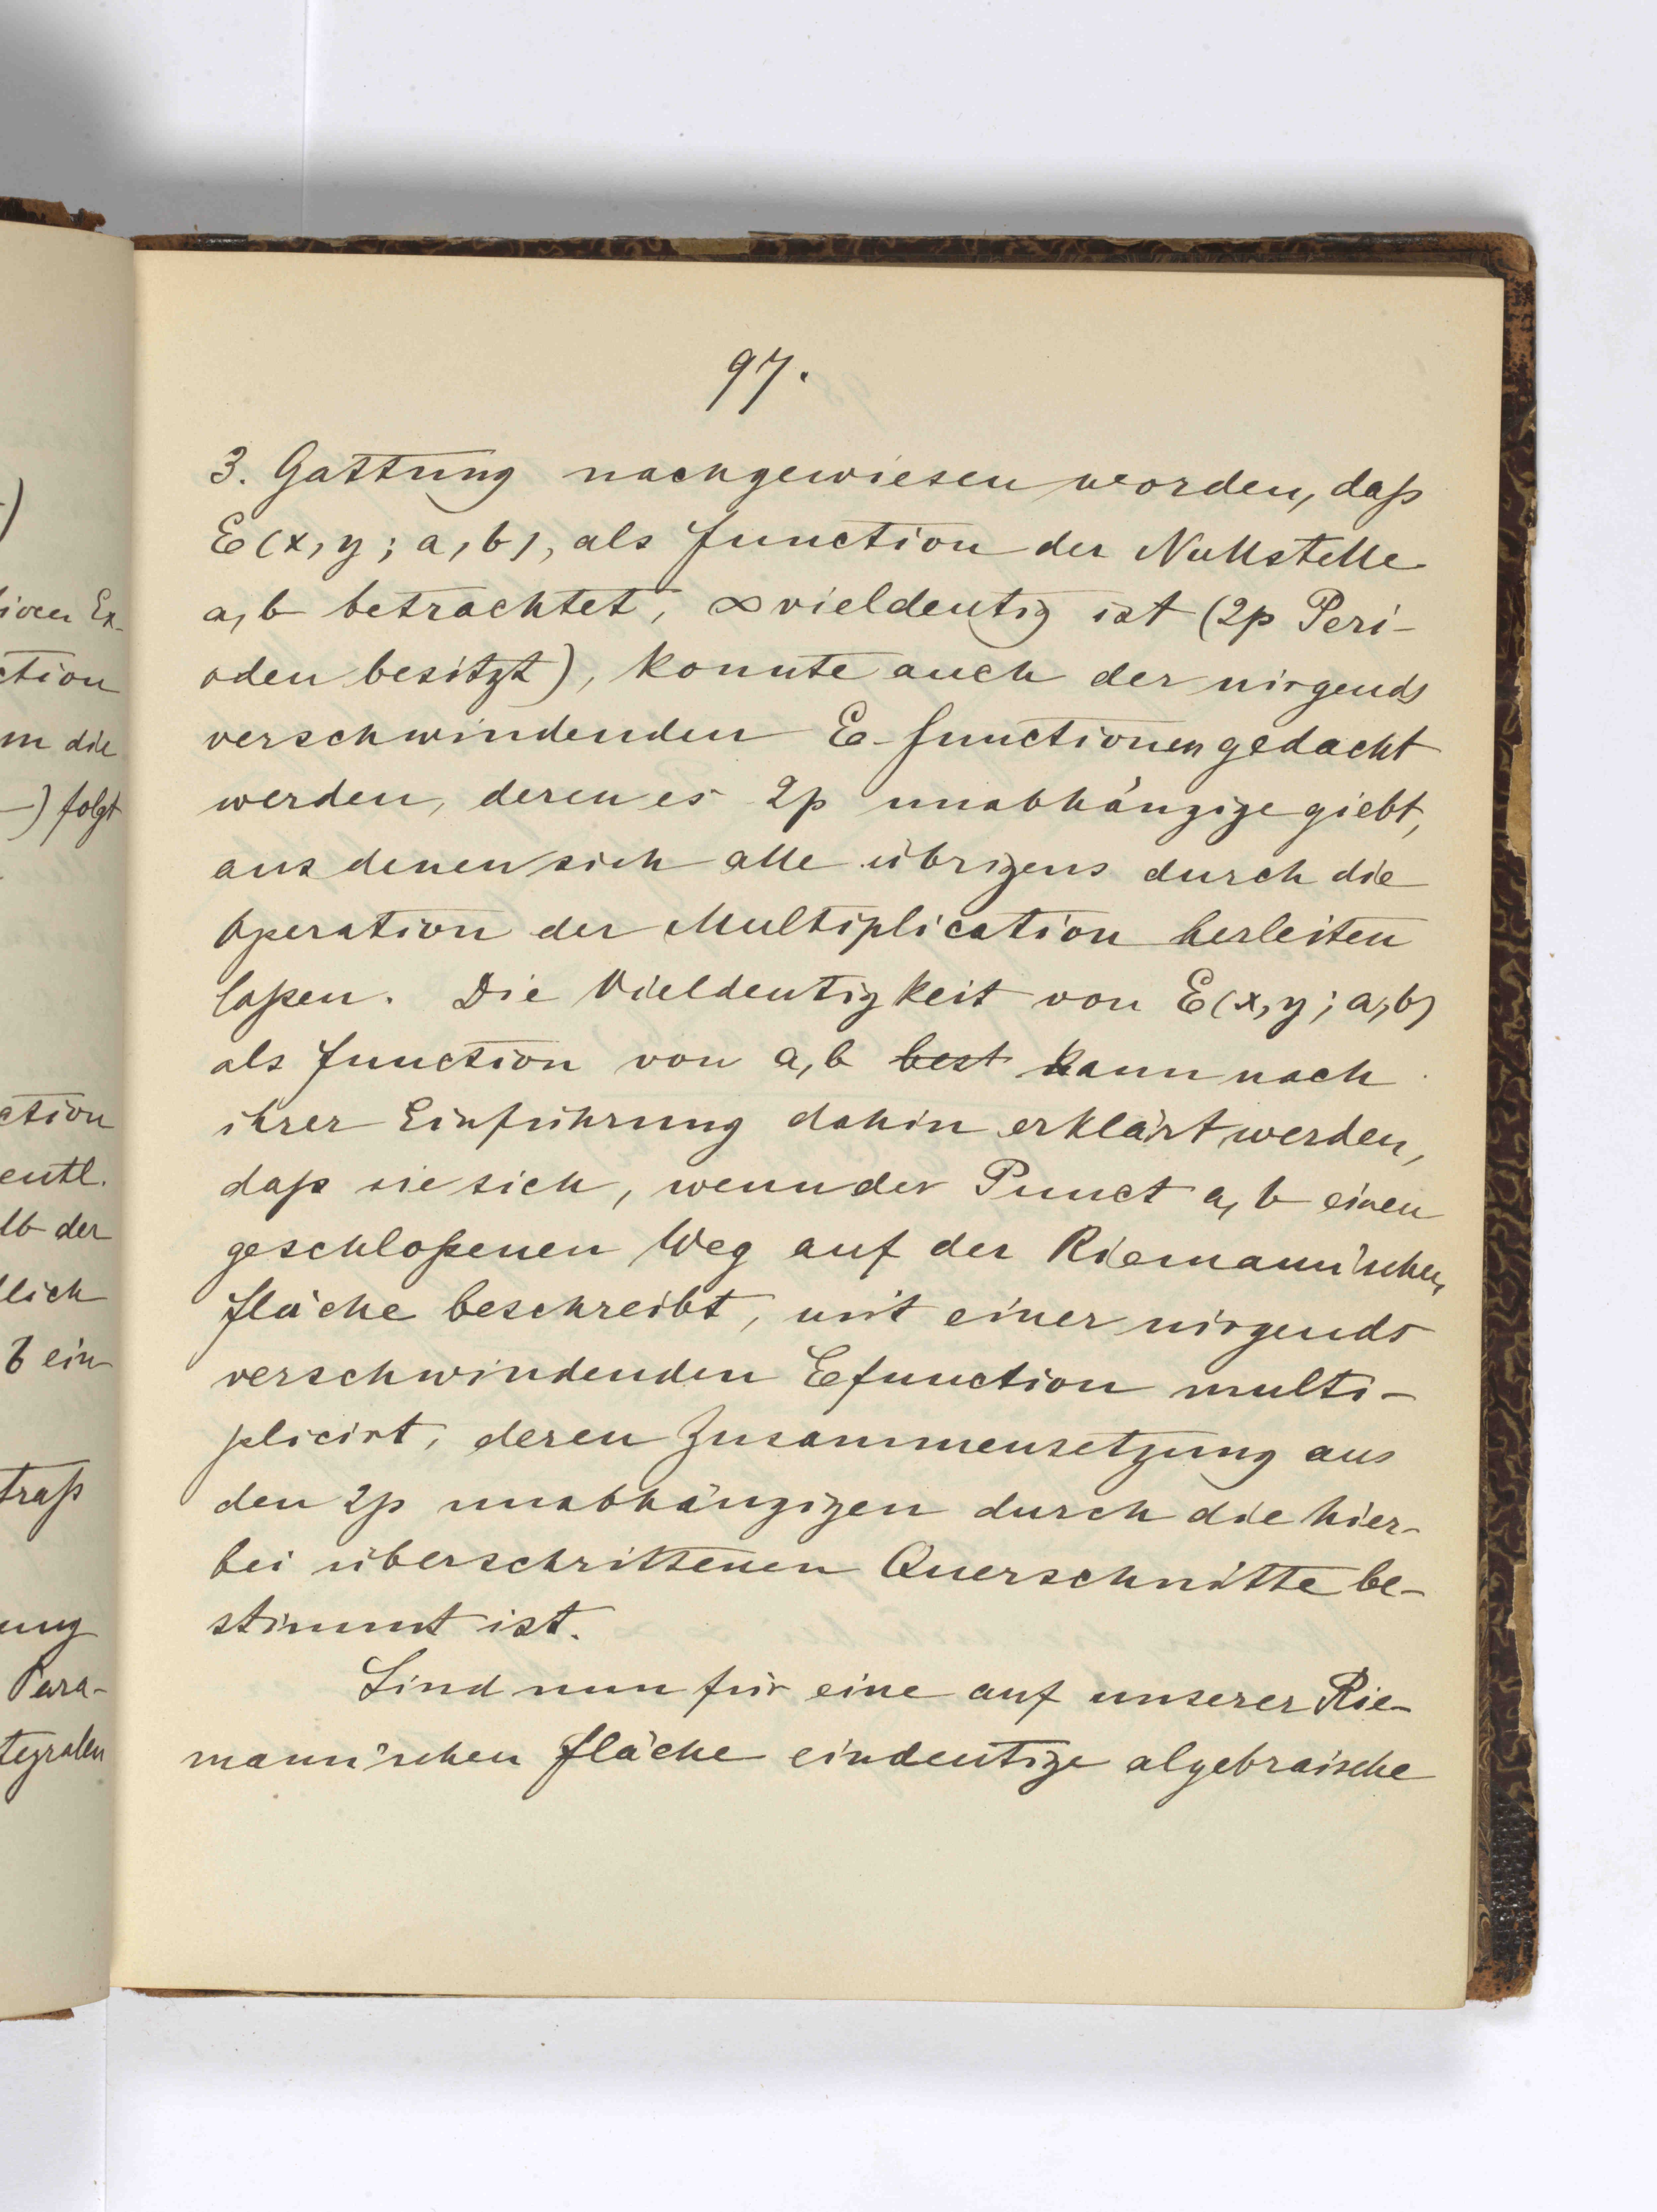 97.
3. Gattung nachgewiesen worden, daß
E(x,y; a,b), als Function der Nullstelle
a,b betrachtet, ∞vieldeutig ist (2p Peri-
oden besitzt), konnte auch der nirgends
verschwindenden E-functionen gedacht
werden, deren es 2p unabhängige giebt,
aus denen sich alle übrigens durch die
Operation der Multiplication herleiten
laßen. Die Vieldeutigkeit von E(x,y; a,b)
als Function von a,b best kann nach
ihrer Einführung dahin erklärt werden,
daß sie sich, wenn der Punct a,b einen
geschloßenen Weg auf der Riemann'schen
Fläche beschreibt, mit einer nirgends
verschwindenden Efunction multi-
plicirt, deren Zusammensetzung aus
den 2p unabhängigen durch die hier-
bei überschrittenen Querschnitte be-
stimmt ist.
Sind nun für eine auf unserer Rie-
mann'schen Fläche eindeutige algebraische
ction
m die
-) folgt
ction
entl.
lb der
lich
b ein
traß
ung
Para-
tegralen